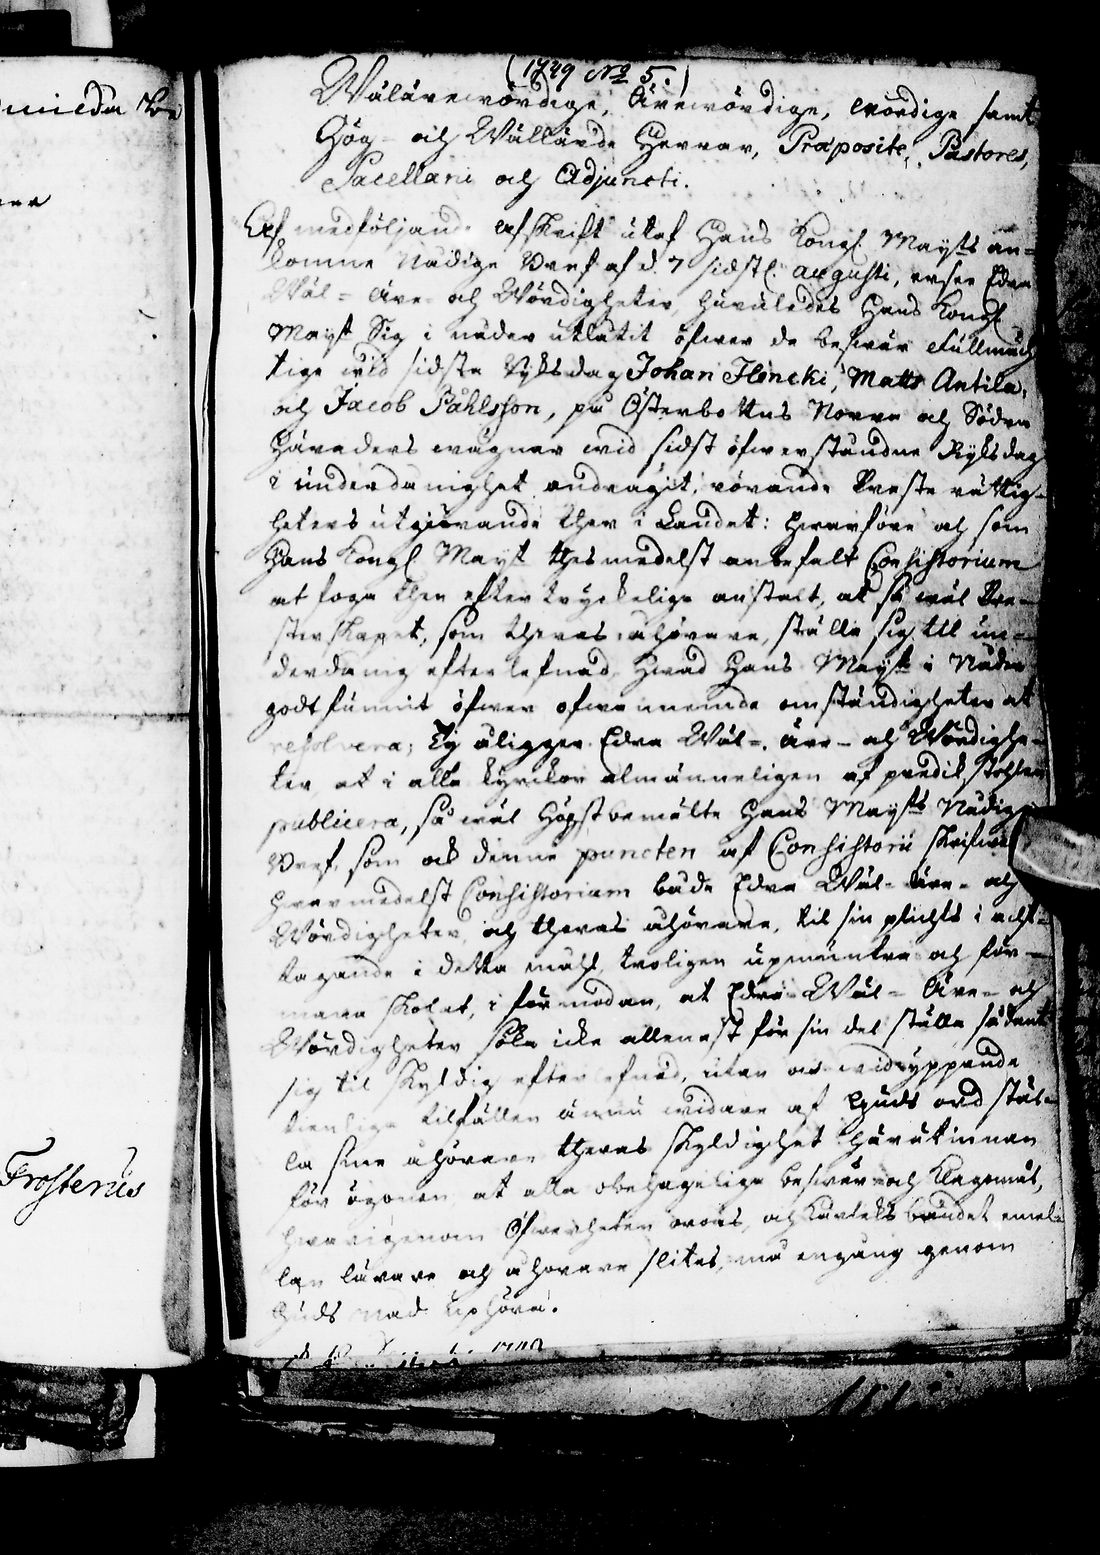 (1749 No 5.)
Wälärewördige, Ärewördige, Wördige samt
Hög- och Wällärde Herrar, Præposite, Pastores,
Sacellani och Adjuncti.
Af medföljande afskrift utaf Hans Kongl. Mayts an-
komne Nådige Bref af d. 7 sidstl. augusti, ersee Edra
Wäl- Äre- och Wördigheter, huruledes Hans Kongl
Mayt Sig i nåder utlåtit öfwer de beswär Fullmäch
tige wid sidsta Ryksdag Johan Hencki, Matts Antila,
och Jacob Påhlsson, på Österbottns Norra och Södra
Häraders wägnar wid sidst öfwerståndne Ryksdag
i underdånighet andragit, rörande Preste rättig-
heters utgiörande ther i Landet: Hwarföre och som
Hans Kongl Mayt thesmedelst anbefalt Consistorium
at foga then eftertryckelige anstalt, at så wäl Pre-
sterskapet, som theras åhörare, ställa sig til un-
derdånig efterlefnad, hwad Hans Mayt i Nåder
godtfunnit öfwer ofwannemnde omständigheter at
resolvera; Ty åligger Edra Wäl-, Äre- och Wördighe-
ter at i alla kyrkor almänneligen af predikstohlen
publicera, så wäl Högstbemälte Hans Mayts Nådige
Bref, som ock denna puncten af Consistorii skrifwelse
hwarmedelst Consistorium både Edra Wäl- Äre- och
Wördigheter, och theras åhörare, til sin plichts i acht-
tagande i detta mahl, troligen upmuntra och för-
mana skolat, i förmodan, at Edra Wäl- Äre- och
Wördigheter söka icke allenast för sin del ställa sådant
sig til skyldig efterlefnad, utan ock wid yppande
tienliga tilfällen ännu widare af Guds ord stäl-
la sine åhörare theras skyldighet härutinnan
för ögonen, at alla obehagelige beswär och klagomål,
hwarigenom Öfwerheten oroas, och kärleks bandet emel-
lan lärare och åhörare slites, må engång genom
Guds nåd uphöra.
Frosterus